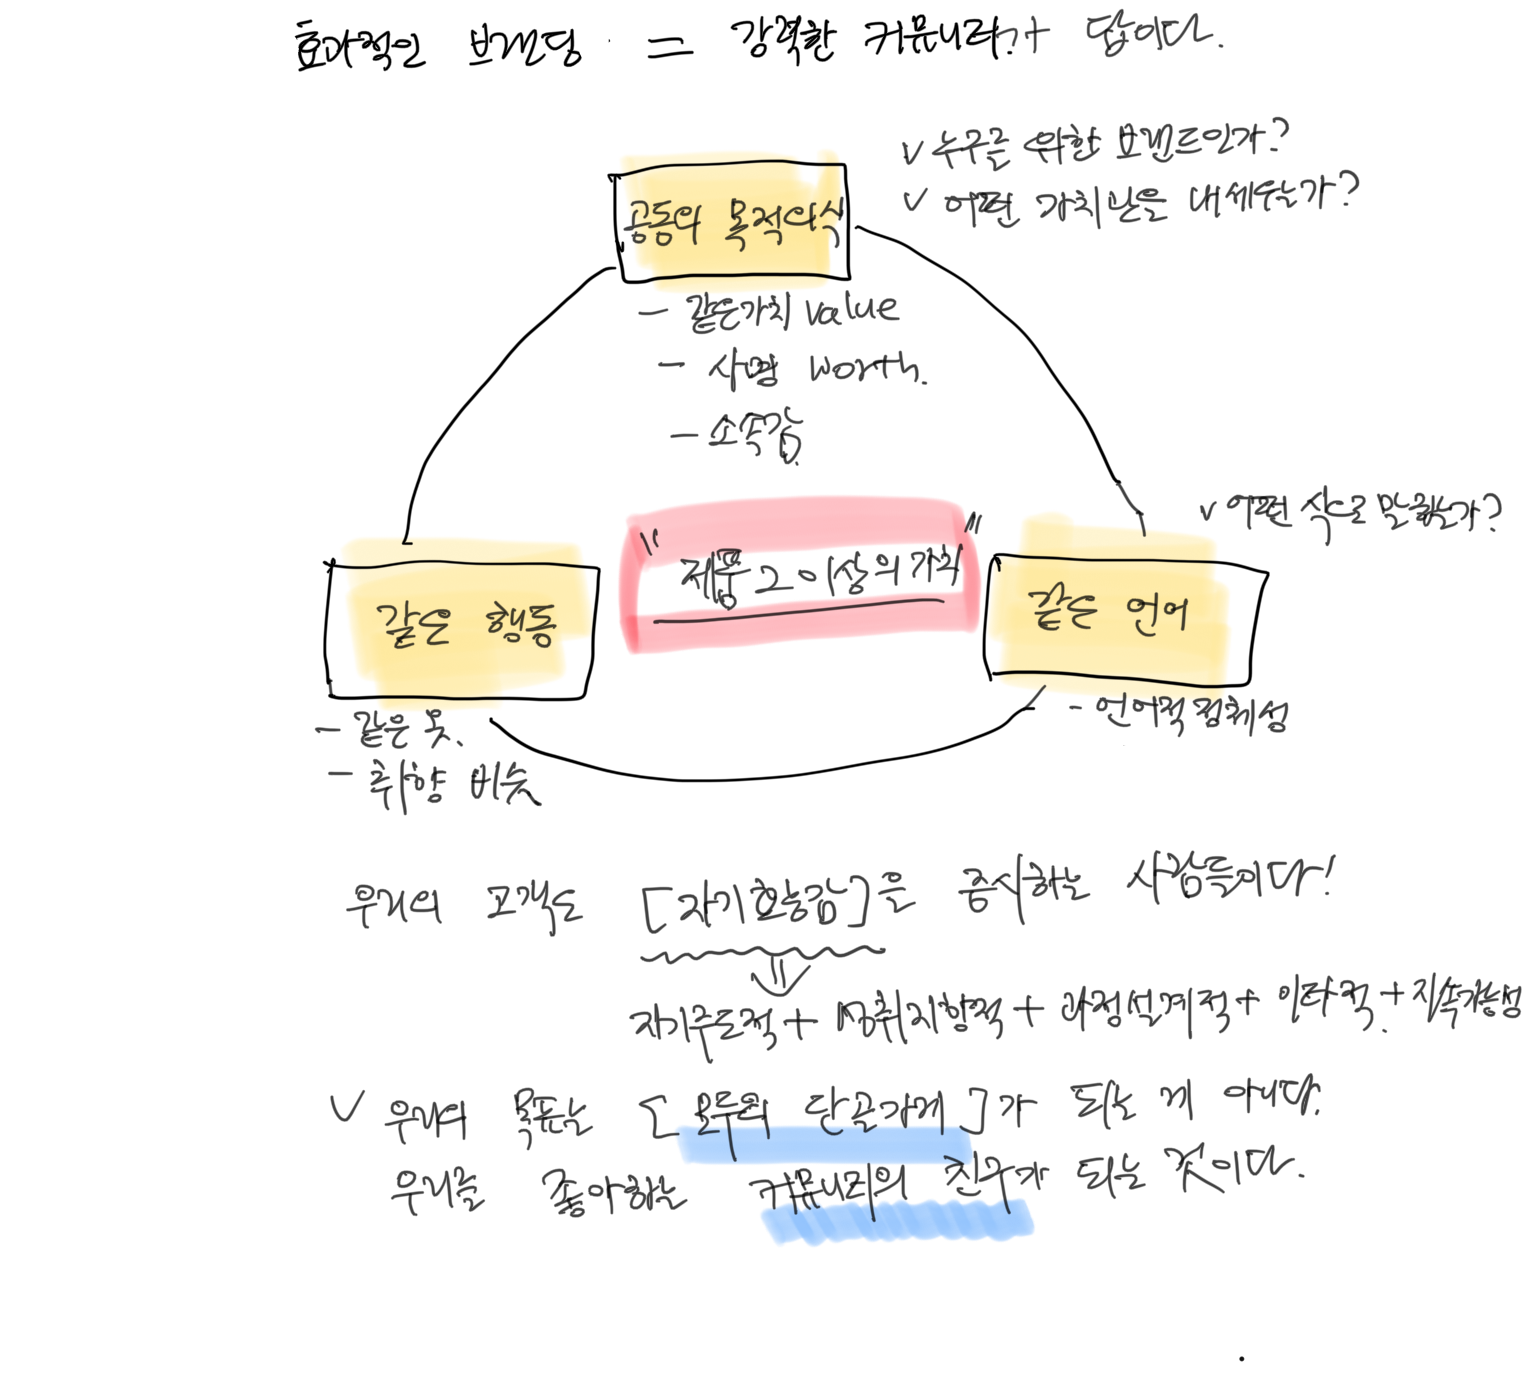 효과적인 브랜딩 = 강력한 커뮤니티가 답이다.
v 누구를 위한 브랜드인가?
v 어떤 가치관을 내세우는가?
공동의 목적의식
- 같은가치 value
- 사명 worth.
- 소속감
v 어떤 식으로 말하는가?
"제품 그 이상의 가치"
같은 행동
같은 언어
- 언어적 정체성
- 같은 옷.
- 취향 비슷
우리의 고객은 [자기효능감]을 중시하는 사람들이다!
자기주도적 + 성취지향적 + 과정설계적 + 이타적 + 지속가능성
v 우리의 목표는 [모두의 단골가게]가 되는 게 아니다.
우리를 좋아하는 커뮤니티의 친구가 되는 것이다.